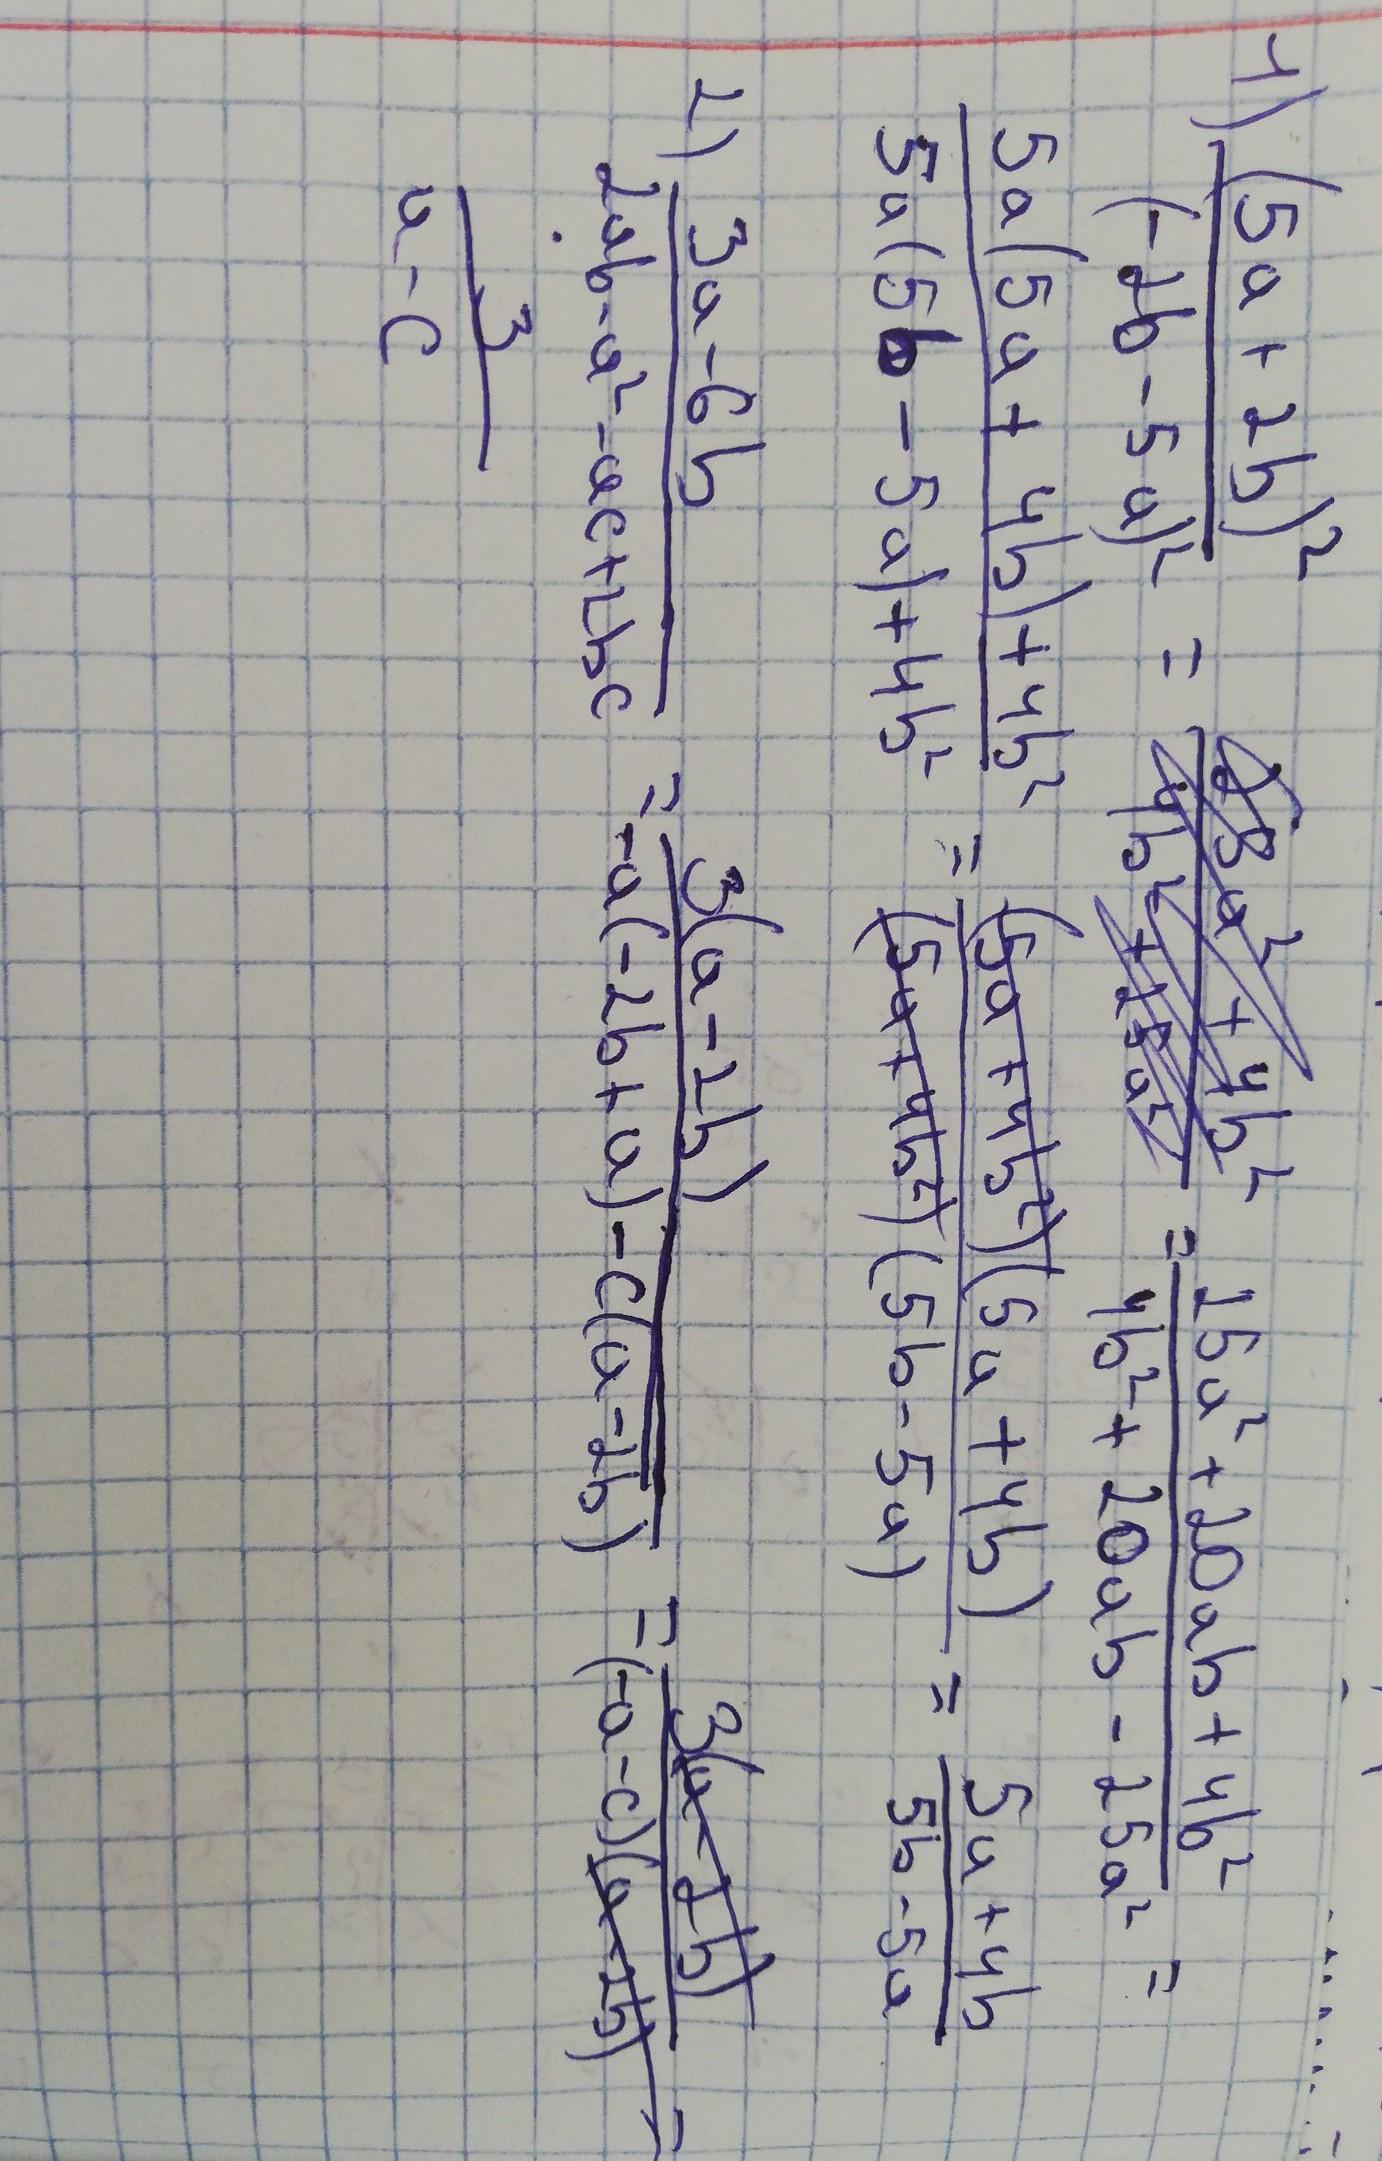 1) (5a + 2b)² / (-2b - 5a)² = = 25a² + 20ab + 4b² / 4b² + 20ab - 25a² =
5a(5a + 4b) + 4b² / 5a(5b - 5a) + 4b² = (5a + 4b²)(5a + 4b) / (5a + 4b²)(5b - 5a) = 5a + 4b / 5b - 5a
2) 3a - 6b / 2ab - a² - ac + 2bc = 3(a - 2b) / -a(-2b + a) - c(a - 2b) = 3(a - 2b) / (-a - c)(a - 2b) =
3 / a - c